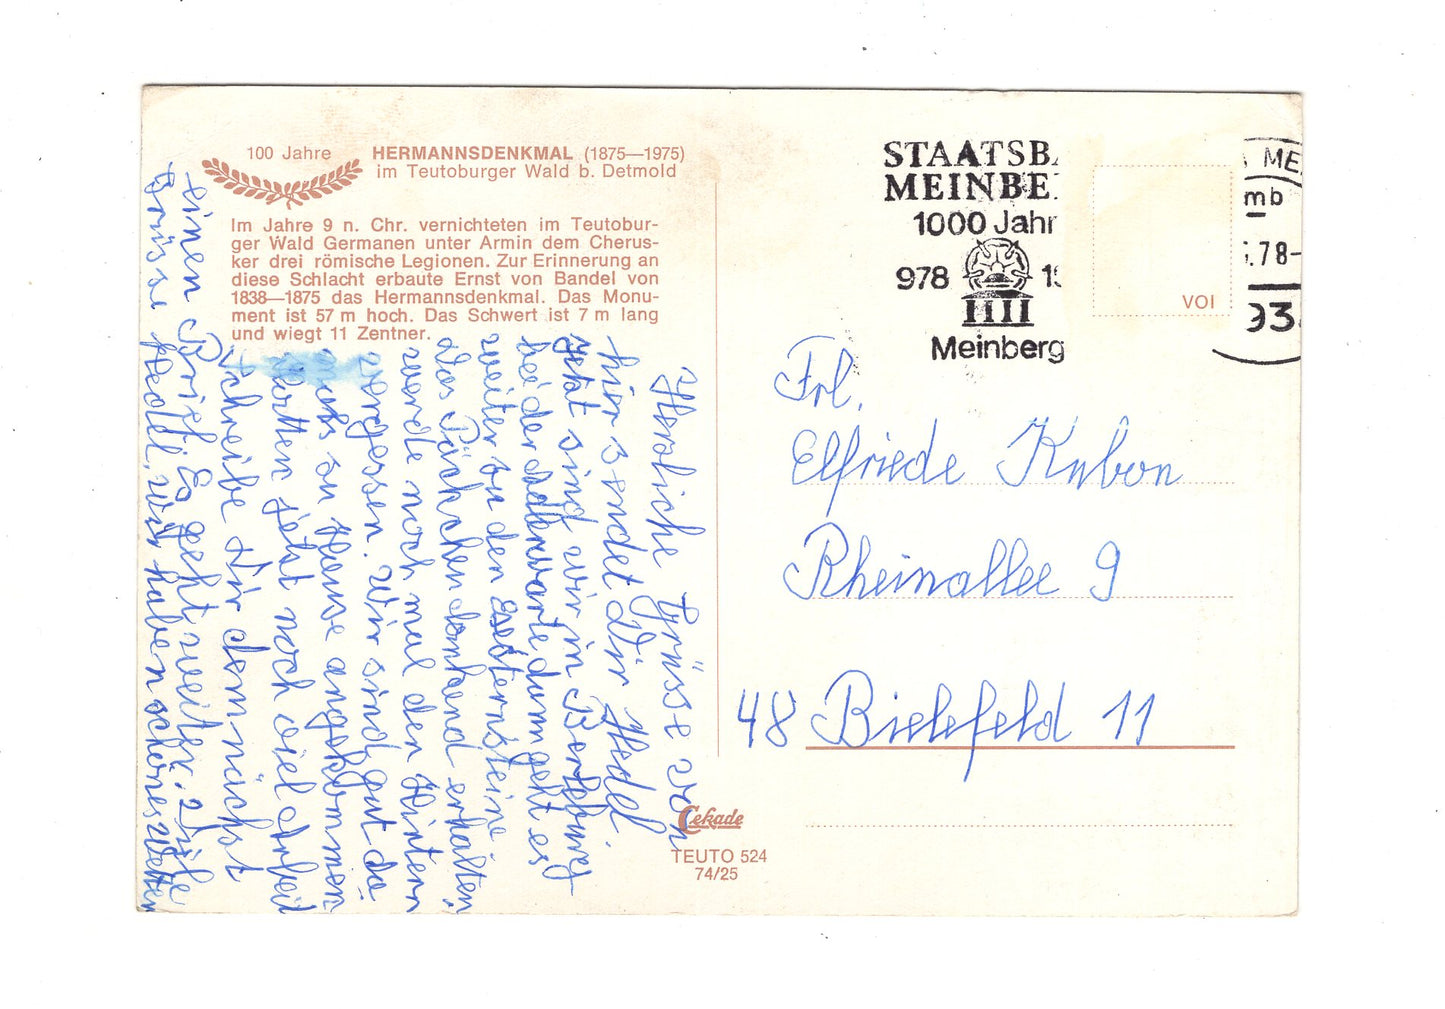 100 Jahre HERMANNSDENKMAL (1875—1975)
im Teutoburger Wald b. Detmold
Im Jahre 9 n. Chr. vernichteten im Teutobur-
ger Wald Germanen unter Armin dem Cherus-
ker drei römische Legionen. Zur Erinnerung an
diese Schlacht erbaute Ernst von Bandel von
1838—1875 das Hermannsdenkmal. Das Monu-
ment ist 57 m hoch. Das Schwert ist 7 m lang
und wiegt 11 Zentner.
Herzliche Grüsse von
hier sendet Dir Hedel.
Jetzt sind wir in Berleburg
bei der dann geht es
weiter zu den Externsteine
das Päckchen dankend erhalten
werde noch mal den Hintern
vergessen. Wir sind gut da
zu Hause angekommen
jetzt noch viel Arbeit
schreibe Dir demnächst
einen Brief. Es geht weiter. Viele
Grüsse Hedel, wir haben schönes Wetter
STAATSB
MEINBE
1000 Jahr
978 19
Meinberg
ME
mb
.78-
93
VOI
Frl.
Elfriede Kubon
Rheinallee 9
48 Bielefeld 11
Cekade
TEUTO 524
74/25